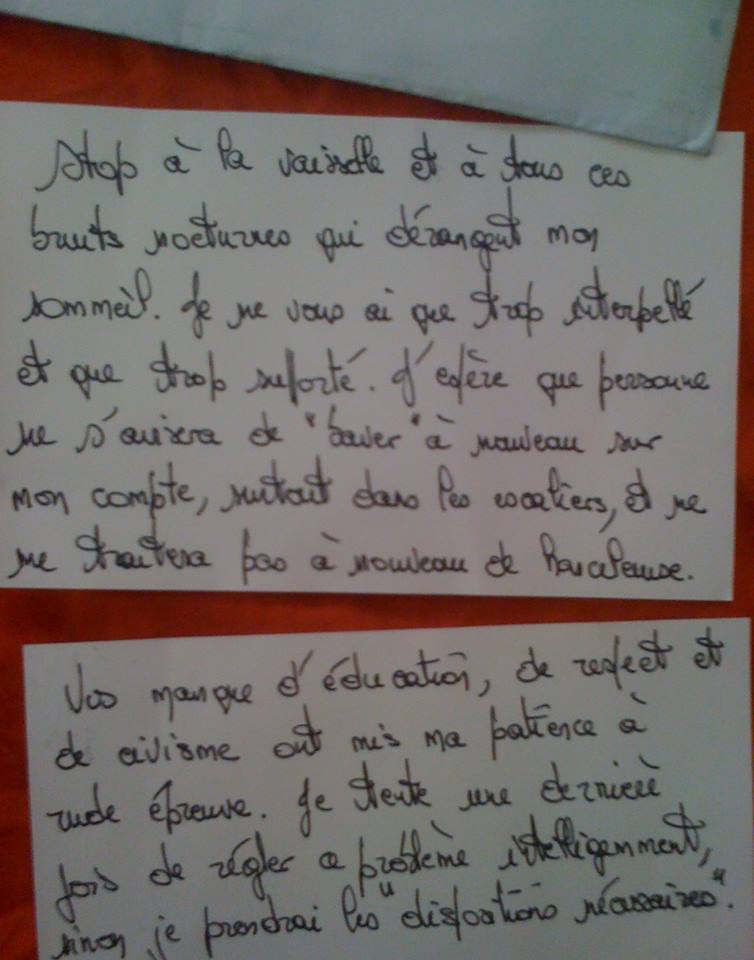 Stop à la vaisselle et à tous ces
bruits nocturnes qui dérangent mon
sommeil. Je ne vous ai que trop interpellé
et que trop suporté. J'espère que personne
ne s'avisera de "baver" à nouveau sur
mon compte, surtout dans les escaliers, et ne
me traitera pas à nouveau de harceleuse.
Vos manque d'éducation, de respect et
de civisme ont mis ma patience à
rude épreuve. Je tente une dernière
fois de régler ce problème intelligemment,
sinon je prendrai les "dispositions nécessaires".